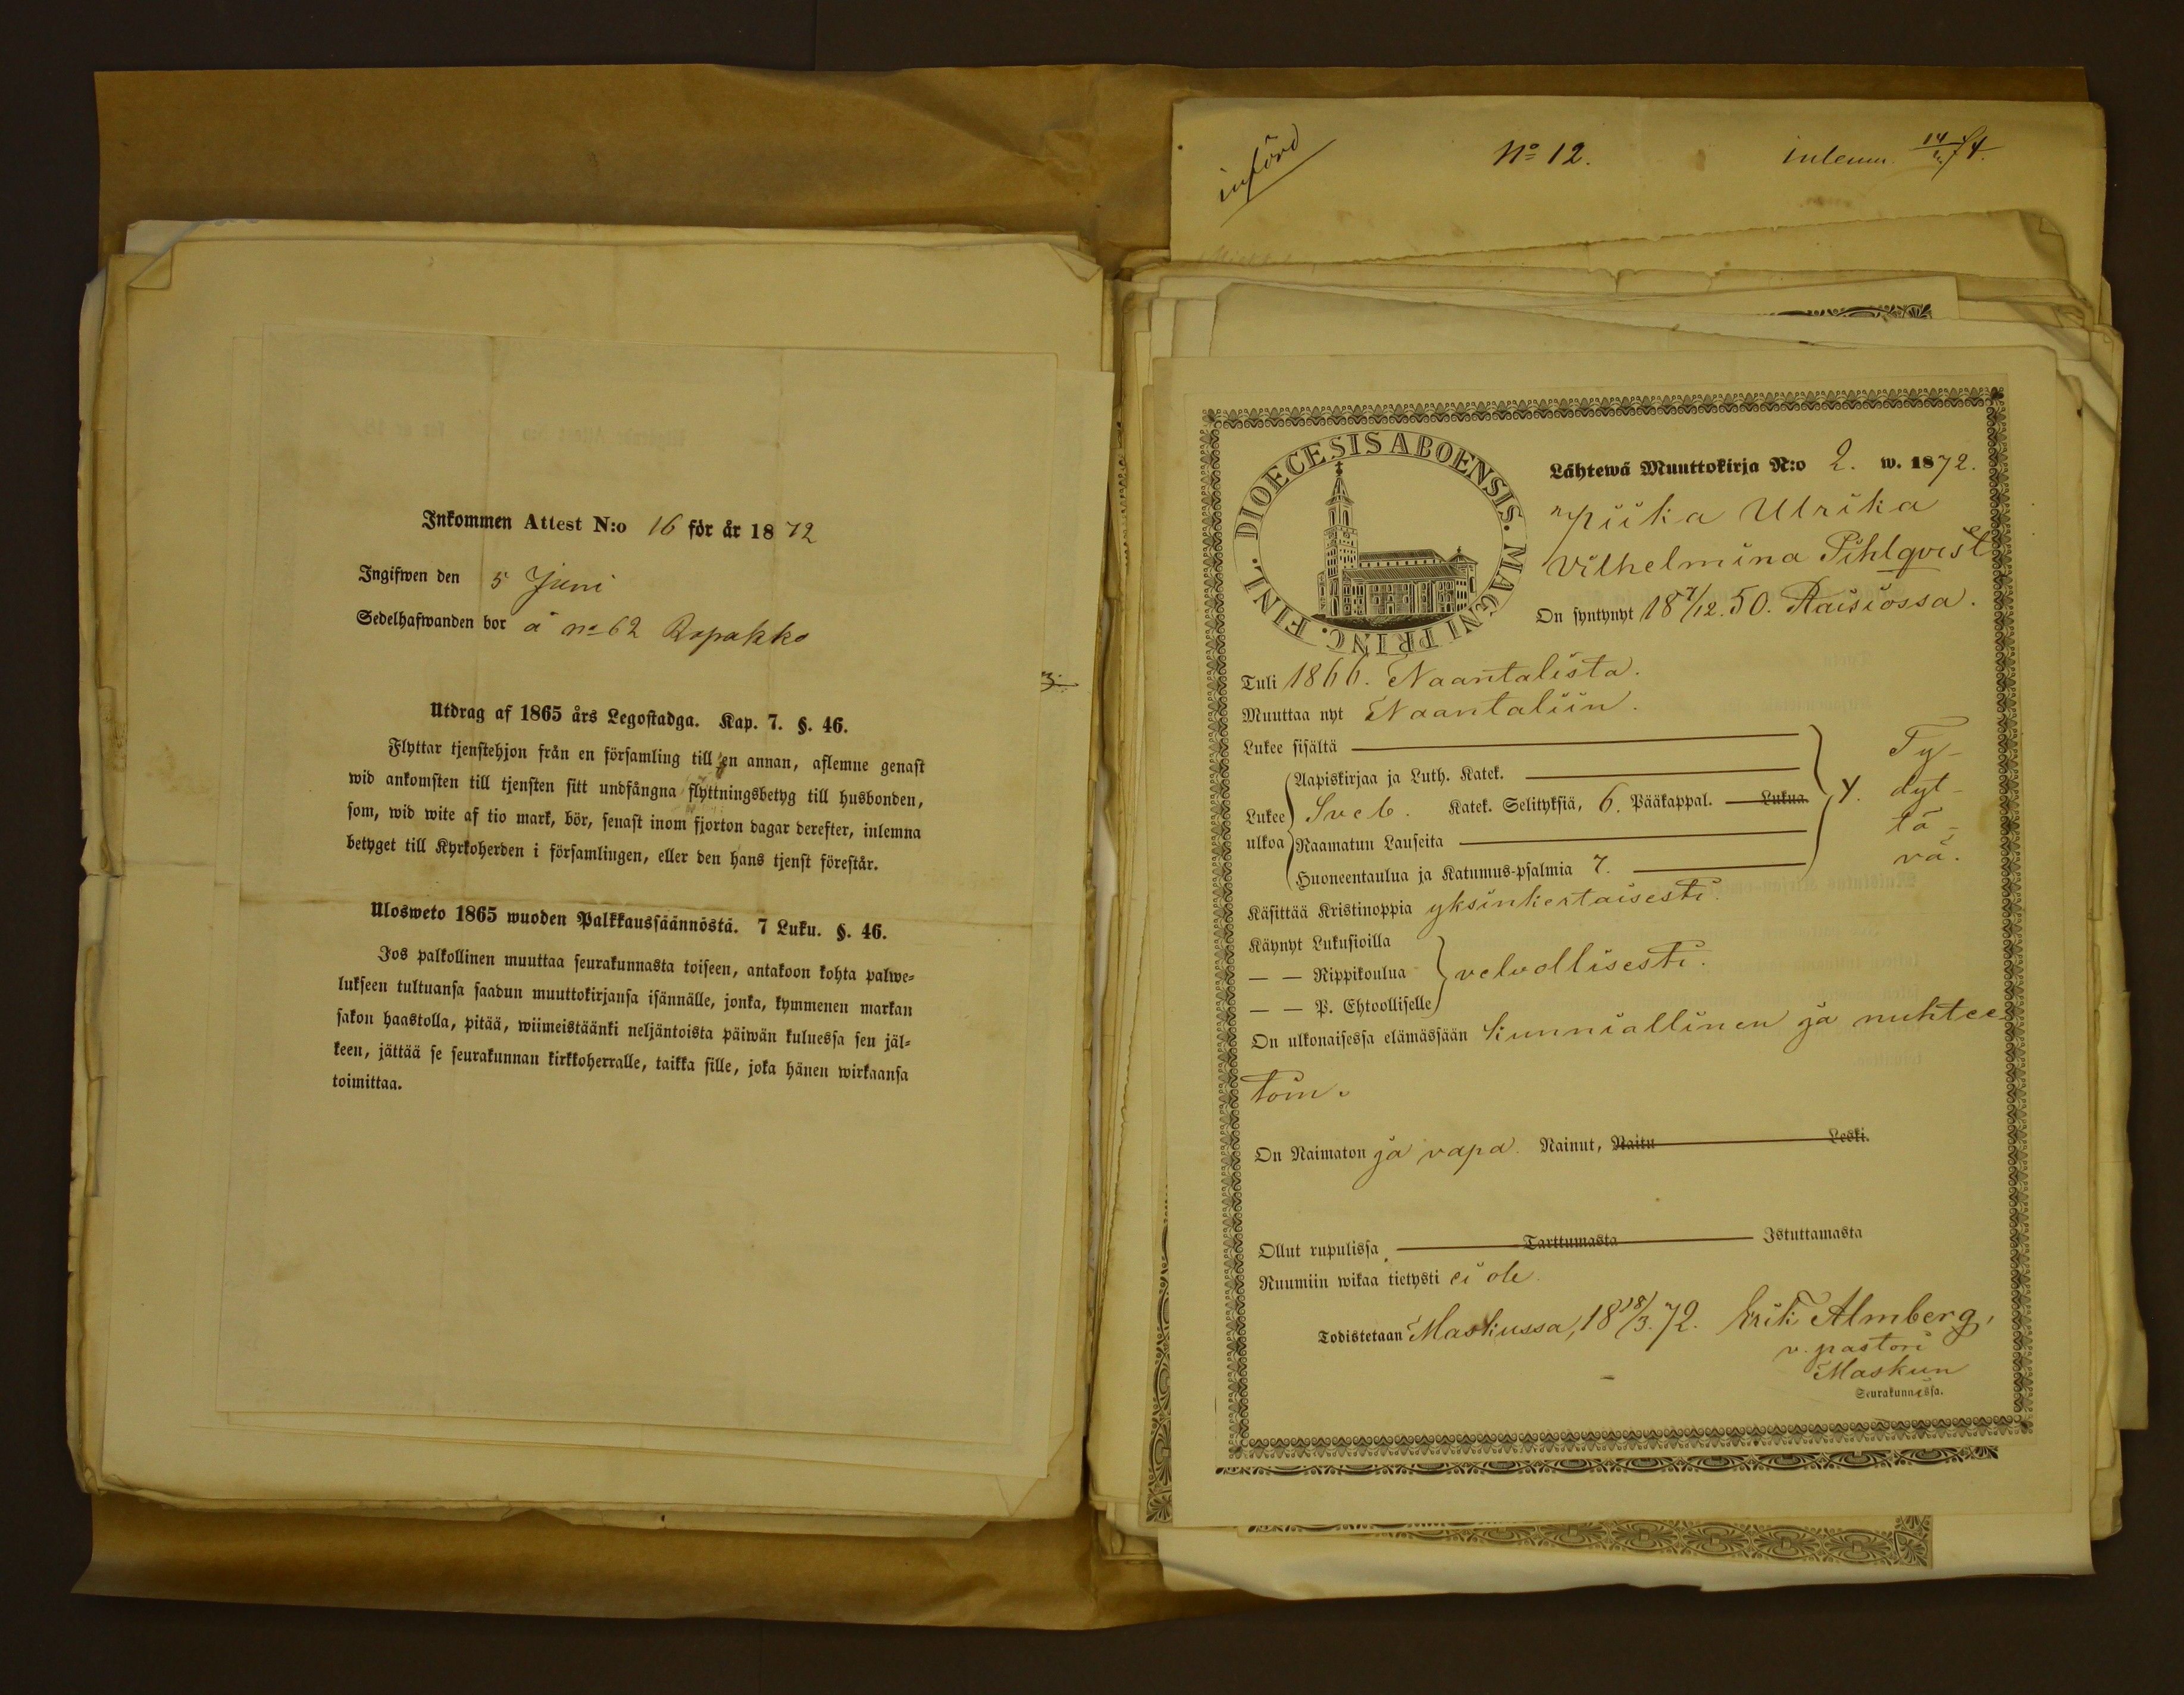 Inkommen Attest N:o 16 för år 1872
Ingifwen den 5 Juni
Sedelhafwanden bor å no 62 Rapakko
Utdrag af 1865 års Legostadga. Kap. 7. §. 46.
Flyttar tjenstehjon från en församling till en annan, aflemne genast
wid ankomsten till tjensten sitt undfångna flyttningsbetyg till husbonden,
som, wid wite af tio mark, bör, senast inom fjorton dagar derefter, inlemna
betyget till Kyrkoherden i församlingen, eller den hans tjenst förestår.
Ulosweto 1865 wuoden Palkkaussäännöstä. 7 Luku. §. 46.
Jos palkollinen muuttaa seurakunnasta toiseen, antakoon kohta palwe=
lukseen tultuansa saadun muuttokirjansa isännälle, jonka, kymmenen markan
sakon haastolla, pitää, wiimeistäänki neljäntoista päiwän kuluessa sen jäl=
keen, jättää se seurakunnan kirkkoherralle, taikka sille, joka hänen wirkaansa
toimittaa.
införd
No 12.
inlemn. 14/ 74.
DIOECESIS ABOENSIS. MAGNI PRINC. FINL.
Lähtewä Muuttokirja N:o 2. w. 1872.
piika Ulrika
Vilhelmina Pihlqvist
On syntynyt 18 7/12. 50. Raisiossa.
Tuli 1866. Naantalista.
Muuttaa nyt Naantaliin.
Lukee sisältä
Aapiskirjaa ja Luth. Katek.
Lukee ulkoa
Sveb. Katek. Selityksiä, 6. Pääkappal. Lukua.
Raamatun Lauseita
Huoneentaulua ja Katumus-psalmia 7.
Ty-
dyt-
tä-
vä.
Käsittää Kristinoppia yksinkertaisesti.
Käynyt Lukusioilla
— — Rippikoulua velvollisesti.
— — P. Ehtoolliselle
On ulkonaisessa elämässään kunniallinen ja nuhtee-
töin.
On Naimaton ja vapa. Nainut, Naitu Leski.
Ollut rupulissa Tarttumasta Istuttamasta
Ruumiin wikaa tietysti ei ole
Todistetaan Maskussa, 18 18/3. 72. Erik Almberg,
v. pastori
Maskun
Seurakunnassa.